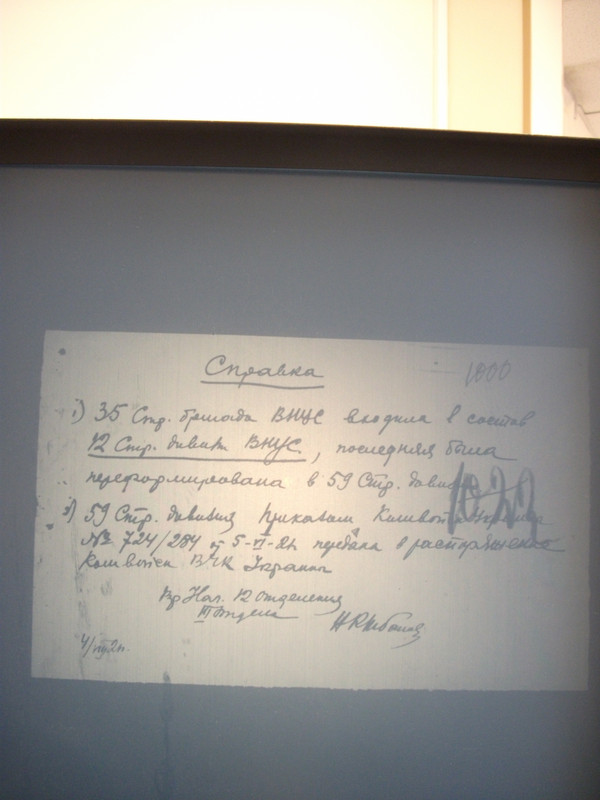 Справка
1000
1) 35 Стр. бригада ВНУС входила в состав
12 Стр. дивиз. ВНУС, последняя была
переформирована в 59 Стр. диви
1020
2) 59 Стр. дивизия Приказом Комвойск
№ 724/284 от 5-VI-21 передана в распоряжение
Комвойск ВЧК Украины
Вр Нач. 12 отделения
III отдела
4/VII 21г.